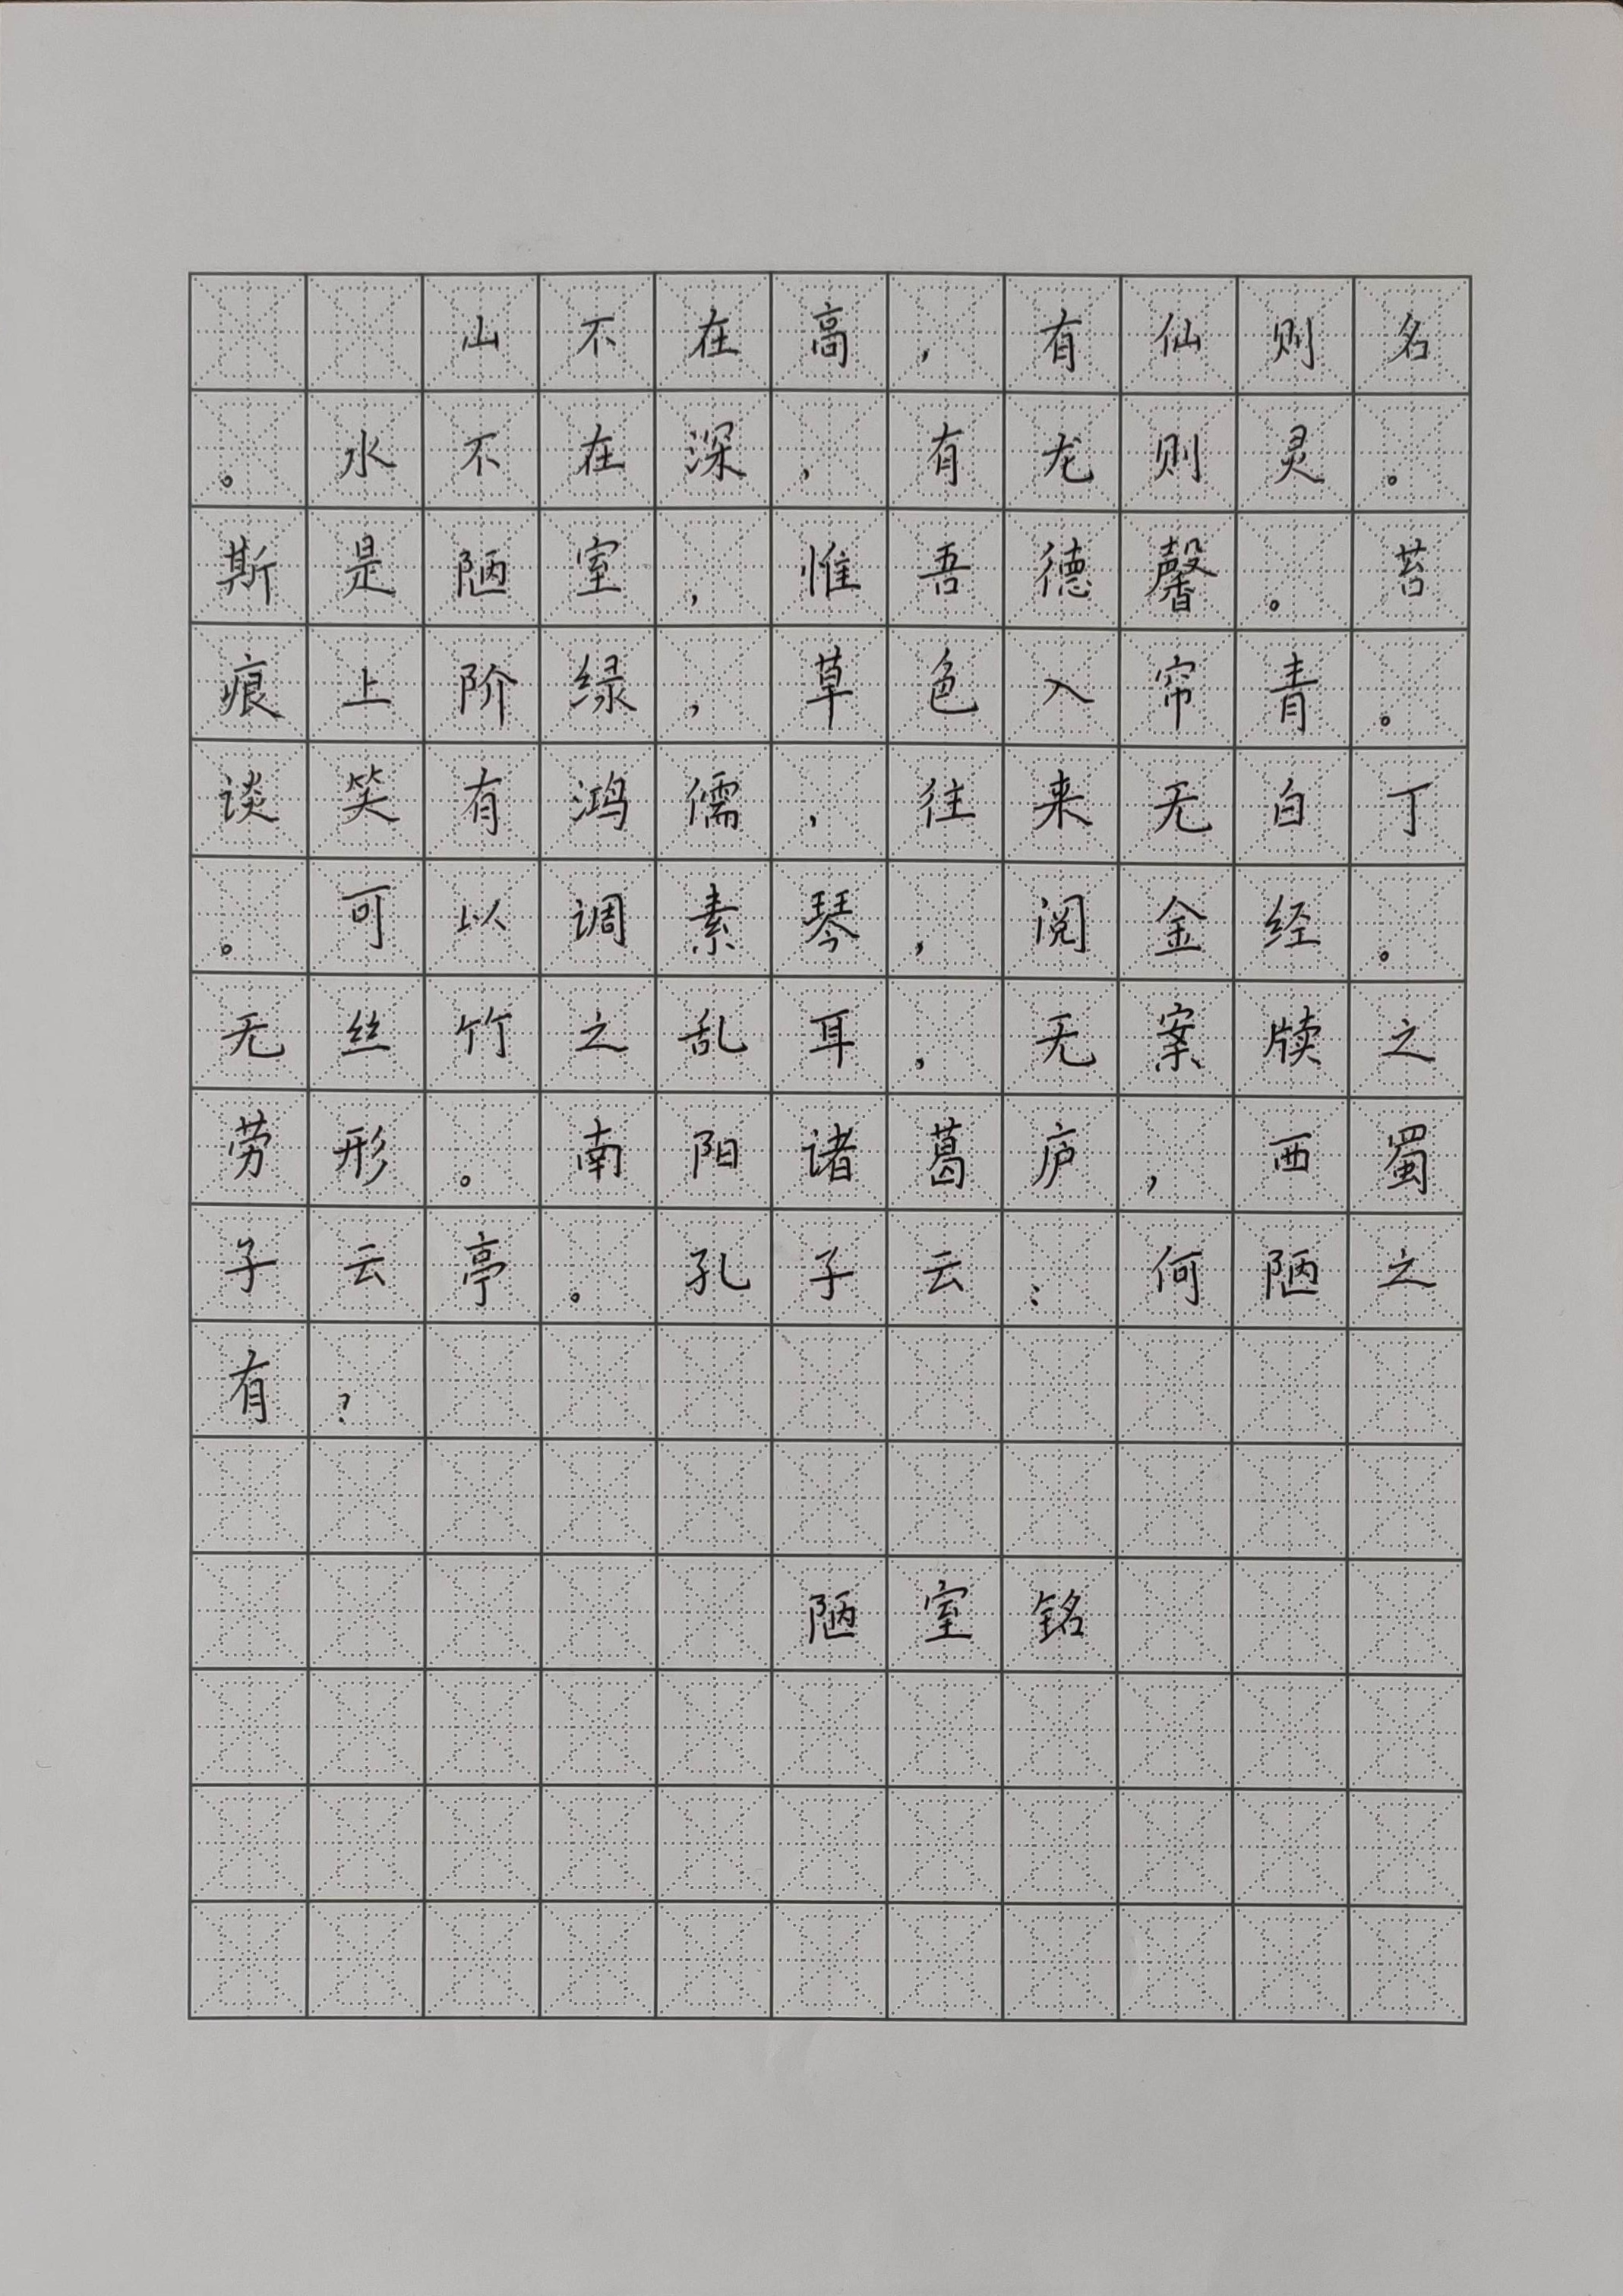 山不在高，有仙则名
。水不在深，有龙则灵。
斯是陋室，惟吾德馨。苔
痕上阶绿，草色入帘青。
谈笑有鸿儒，往来无白丁
。可以调素琴，阅金经。
无丝竹之乱耳，无案牍之
劳形。南阳诸葛庐，西蜀
子云亭。孔子云：何陋之
有？
陋室铭